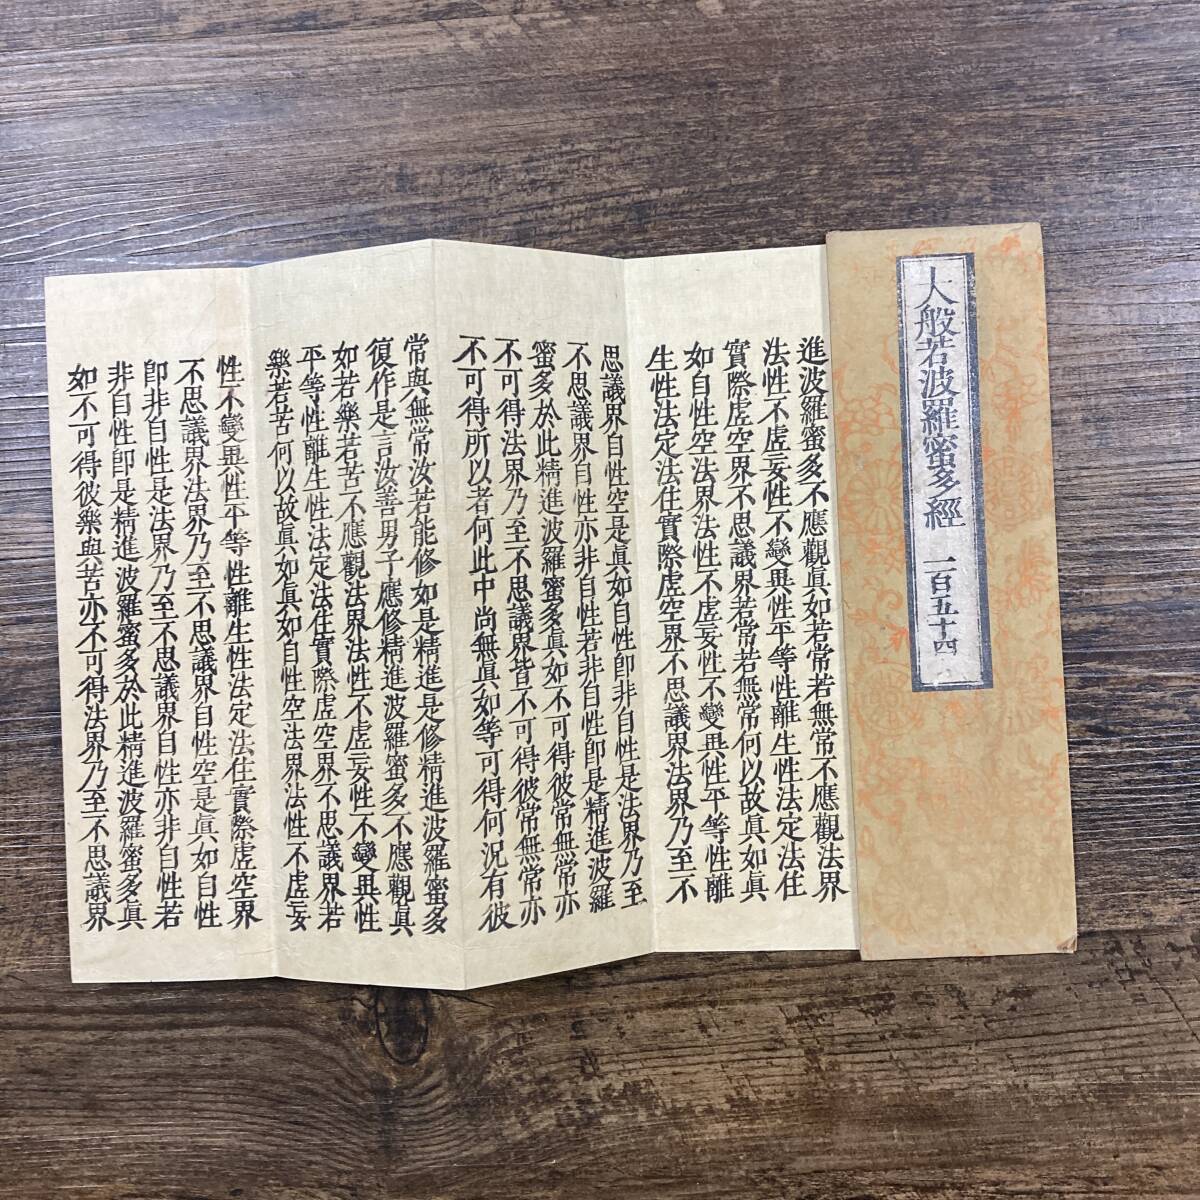 大般若波羅蜜多經 一百五十四
進波羅蜜多不應觀眞如若常若無常不應觀法界
法性不虛妄性不變異性平等性離生性法定法住
實際虛空界不思議界若常若無常何以故眞如眞
如自性空法界法性不虛妄性不變異性平等性離
生性法定法住實際虛空界不思議界法界乃至不
思議界自性空是眞如自性卽非自性是法界乃至
不思議界自性亦非自性若非自性卽是精進波羅
蜜多於此精進波羅蜜多眞如不可得彼常無常亦
不可得法界乃至不思議界皆不可得彼常無常亦
不可得所以者何此中尚無眞如等可得何況有彼
常與無常汝若能修如是精進是修精進波羅蜜多
復作是言汝善男子應修精進波羅蜜多不應觀眞
如若樂若苦不應觀法界法性不虛妄性不變異性
平等性離生性法定法住實際虛空界不思議界若
樂若苦何以故眞如眞如自性空法界法性不虛妄
性不變異性平等性離生性法定法住實際虛空界
不思議界法界乃至不思議界自性空是眞如自性
卽非自性是法界乃至不思議界自性亦非自性若
非自性卽是精進波羅蜜多於此精進波羅蜜多眞
如不可得彼樂與苦亦不可得法界乃至不思議界